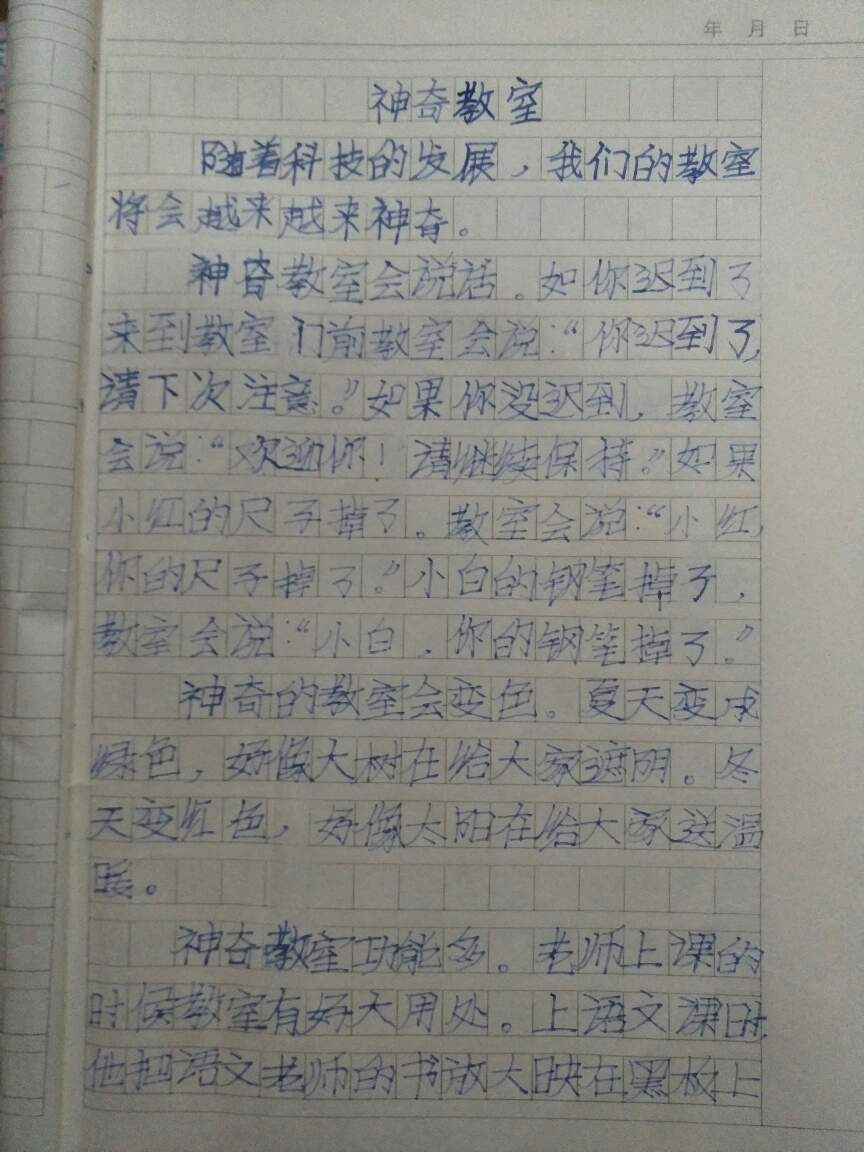 年 月 日
神奇教室
随着科技的发展，我们的教室
将会越来越来神奇。
神奇教室会说话。如你迟到了
来到教室门前教室会说：“你迟到了，
请下次注意。”如果你没迟到，教室
会说：“欢迎你！请继续保持。”如果
小红的尺子掉了。教室会说：“小红，
你的尺子掉了。”小白的钢笔掉了，
教室会说：“小白，你的钢笔掉了。”
神奇的教室会变色。夏天变成
绿色，好像大树在给大家遮阴。冬
天变红色，好像太阳在给大家送温
暖。
神奇教室功能多。老师上课的
时候教室有好大用处。上语文课时，
他把语文老师的书放大映在黑板上